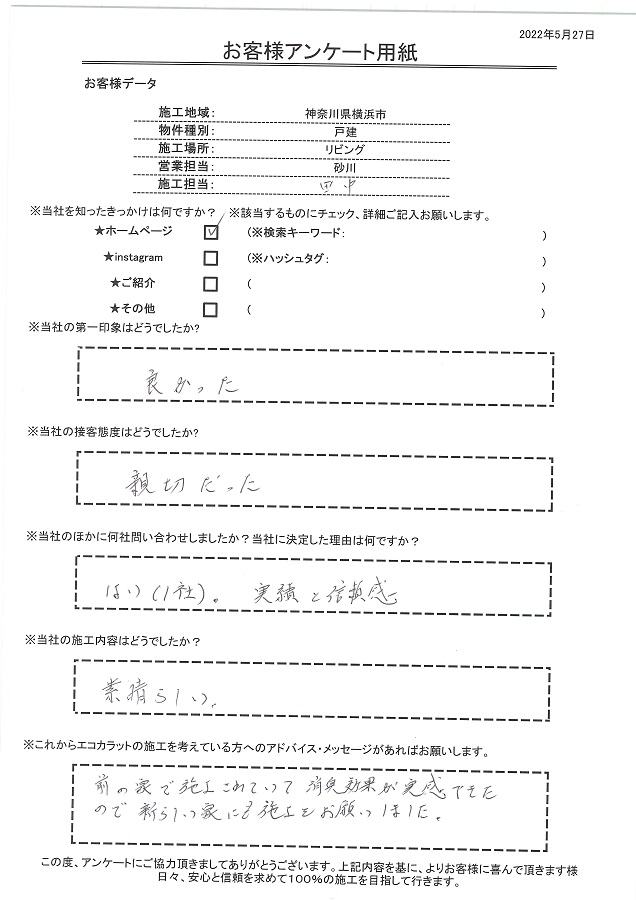 2022年5月27日
お客様アンケート用紙
お客様データ
施工地域: 神奈川県横浜市
物件種別: 戸建
施工場所: リビング
営業担当: 砂川
施工担当: 田中
※当社を知ったきっかけは何ですか? ※該当するものにチェック、詳細ご記入お願いします。
★ホームページ ☑ (※検索キーワード: )
★instagram □ (※ハッシュタグ: )
★ご紹介 □ ( )
★その他 □ ( )
※当社の第一印象はどうでしたか?
良かった
※当社の接客態度はどうでしたか?
親切だった
※当社のほかに何社問い合わせしましたか?当社に決定した理由は何ですか?
はい(1社)。 実績と信頼感
※当社の施工内容はどうでしたか?
素晴らしい。
※これからエコカラットの施工を考えている方へのアドバイス・メッセージがあればお願いします。
前の家で施工されていて消臭効果が実感できた
ので新らしい家にも施工をお願いしました。
この度、アンケートにご協力頂きましてありがとうございます。上記内容を基に、よりお客様に喜んで頂きます様
日々、安心と信頼を求めて100%の施工を目指して行きます。